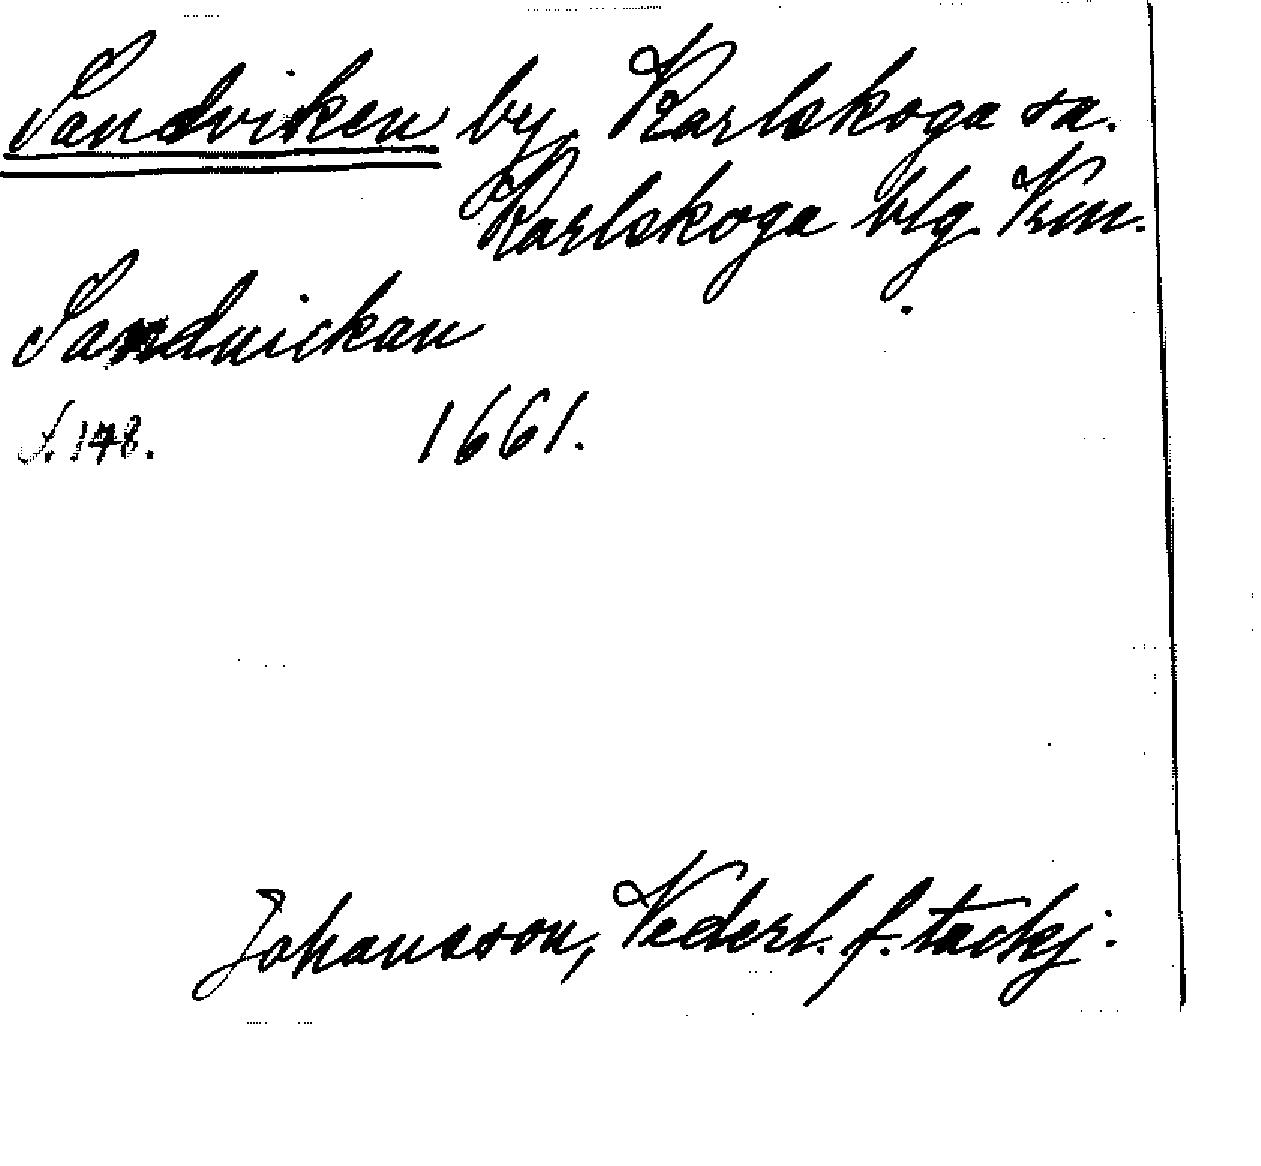 Sandviken by Karlskoga sn.
Karlskoga blg. Krm.
Sandwickan
S. 148. 1661.
Johansson, Vederl. f. tackj: